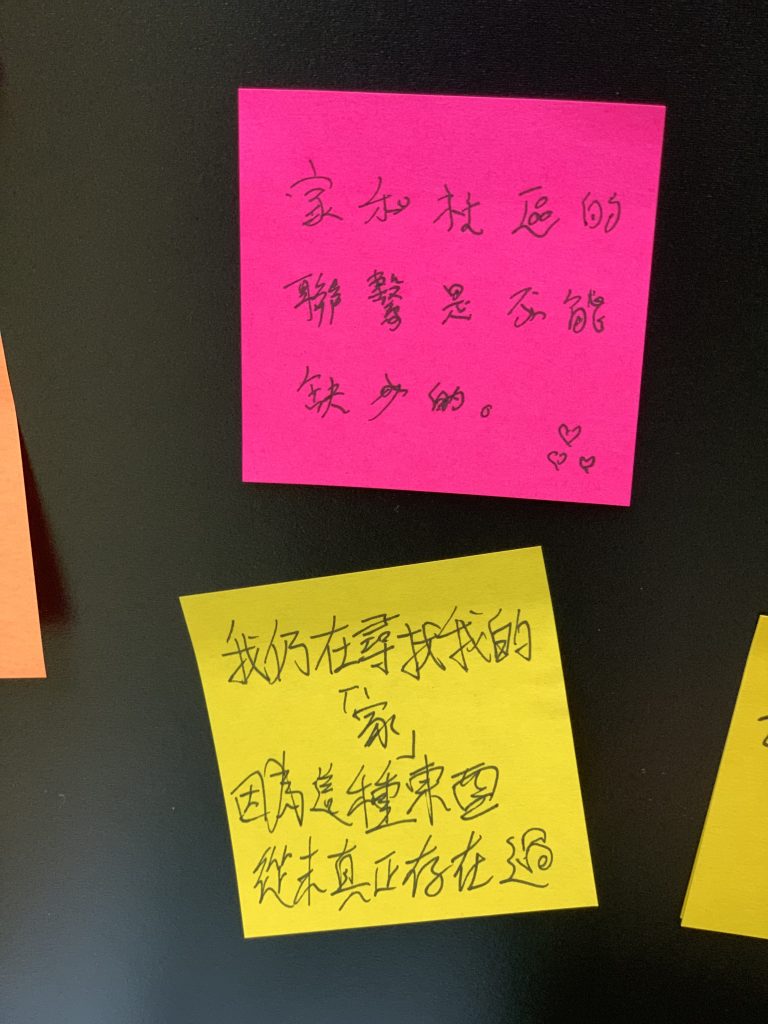 家和社區的
聯繫是不能
缺少的。
我仍在尋找我的
「家」
因為這種東西
從未真正存在過